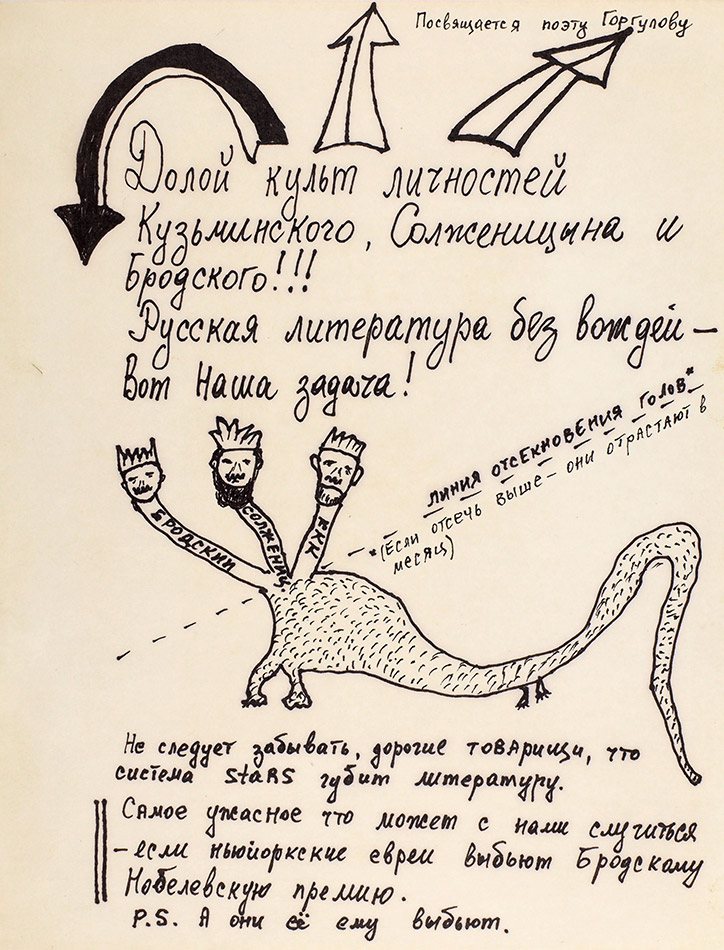 Посвящается поэту Горгулову
Долой культ личностей
Кузьминского, Солженицына и
Бродского!!!
Русская литература без вождей —
Вот Наша задача!
Линия отсекновения голов*
*(Если отсечь выше — они отрастают в
месяц)
БРОДСКИЙ
СОЛЖЕНИЦ
ККК
Не следует забывать, дорогие товарищи, что
система StaRS губит литературу.
Самое ужасное что может с нами случиться
— если ньюйоркские евреи выбьют Бродскому
Нобелевскую премию.
P.S. А они её ему выбьют.